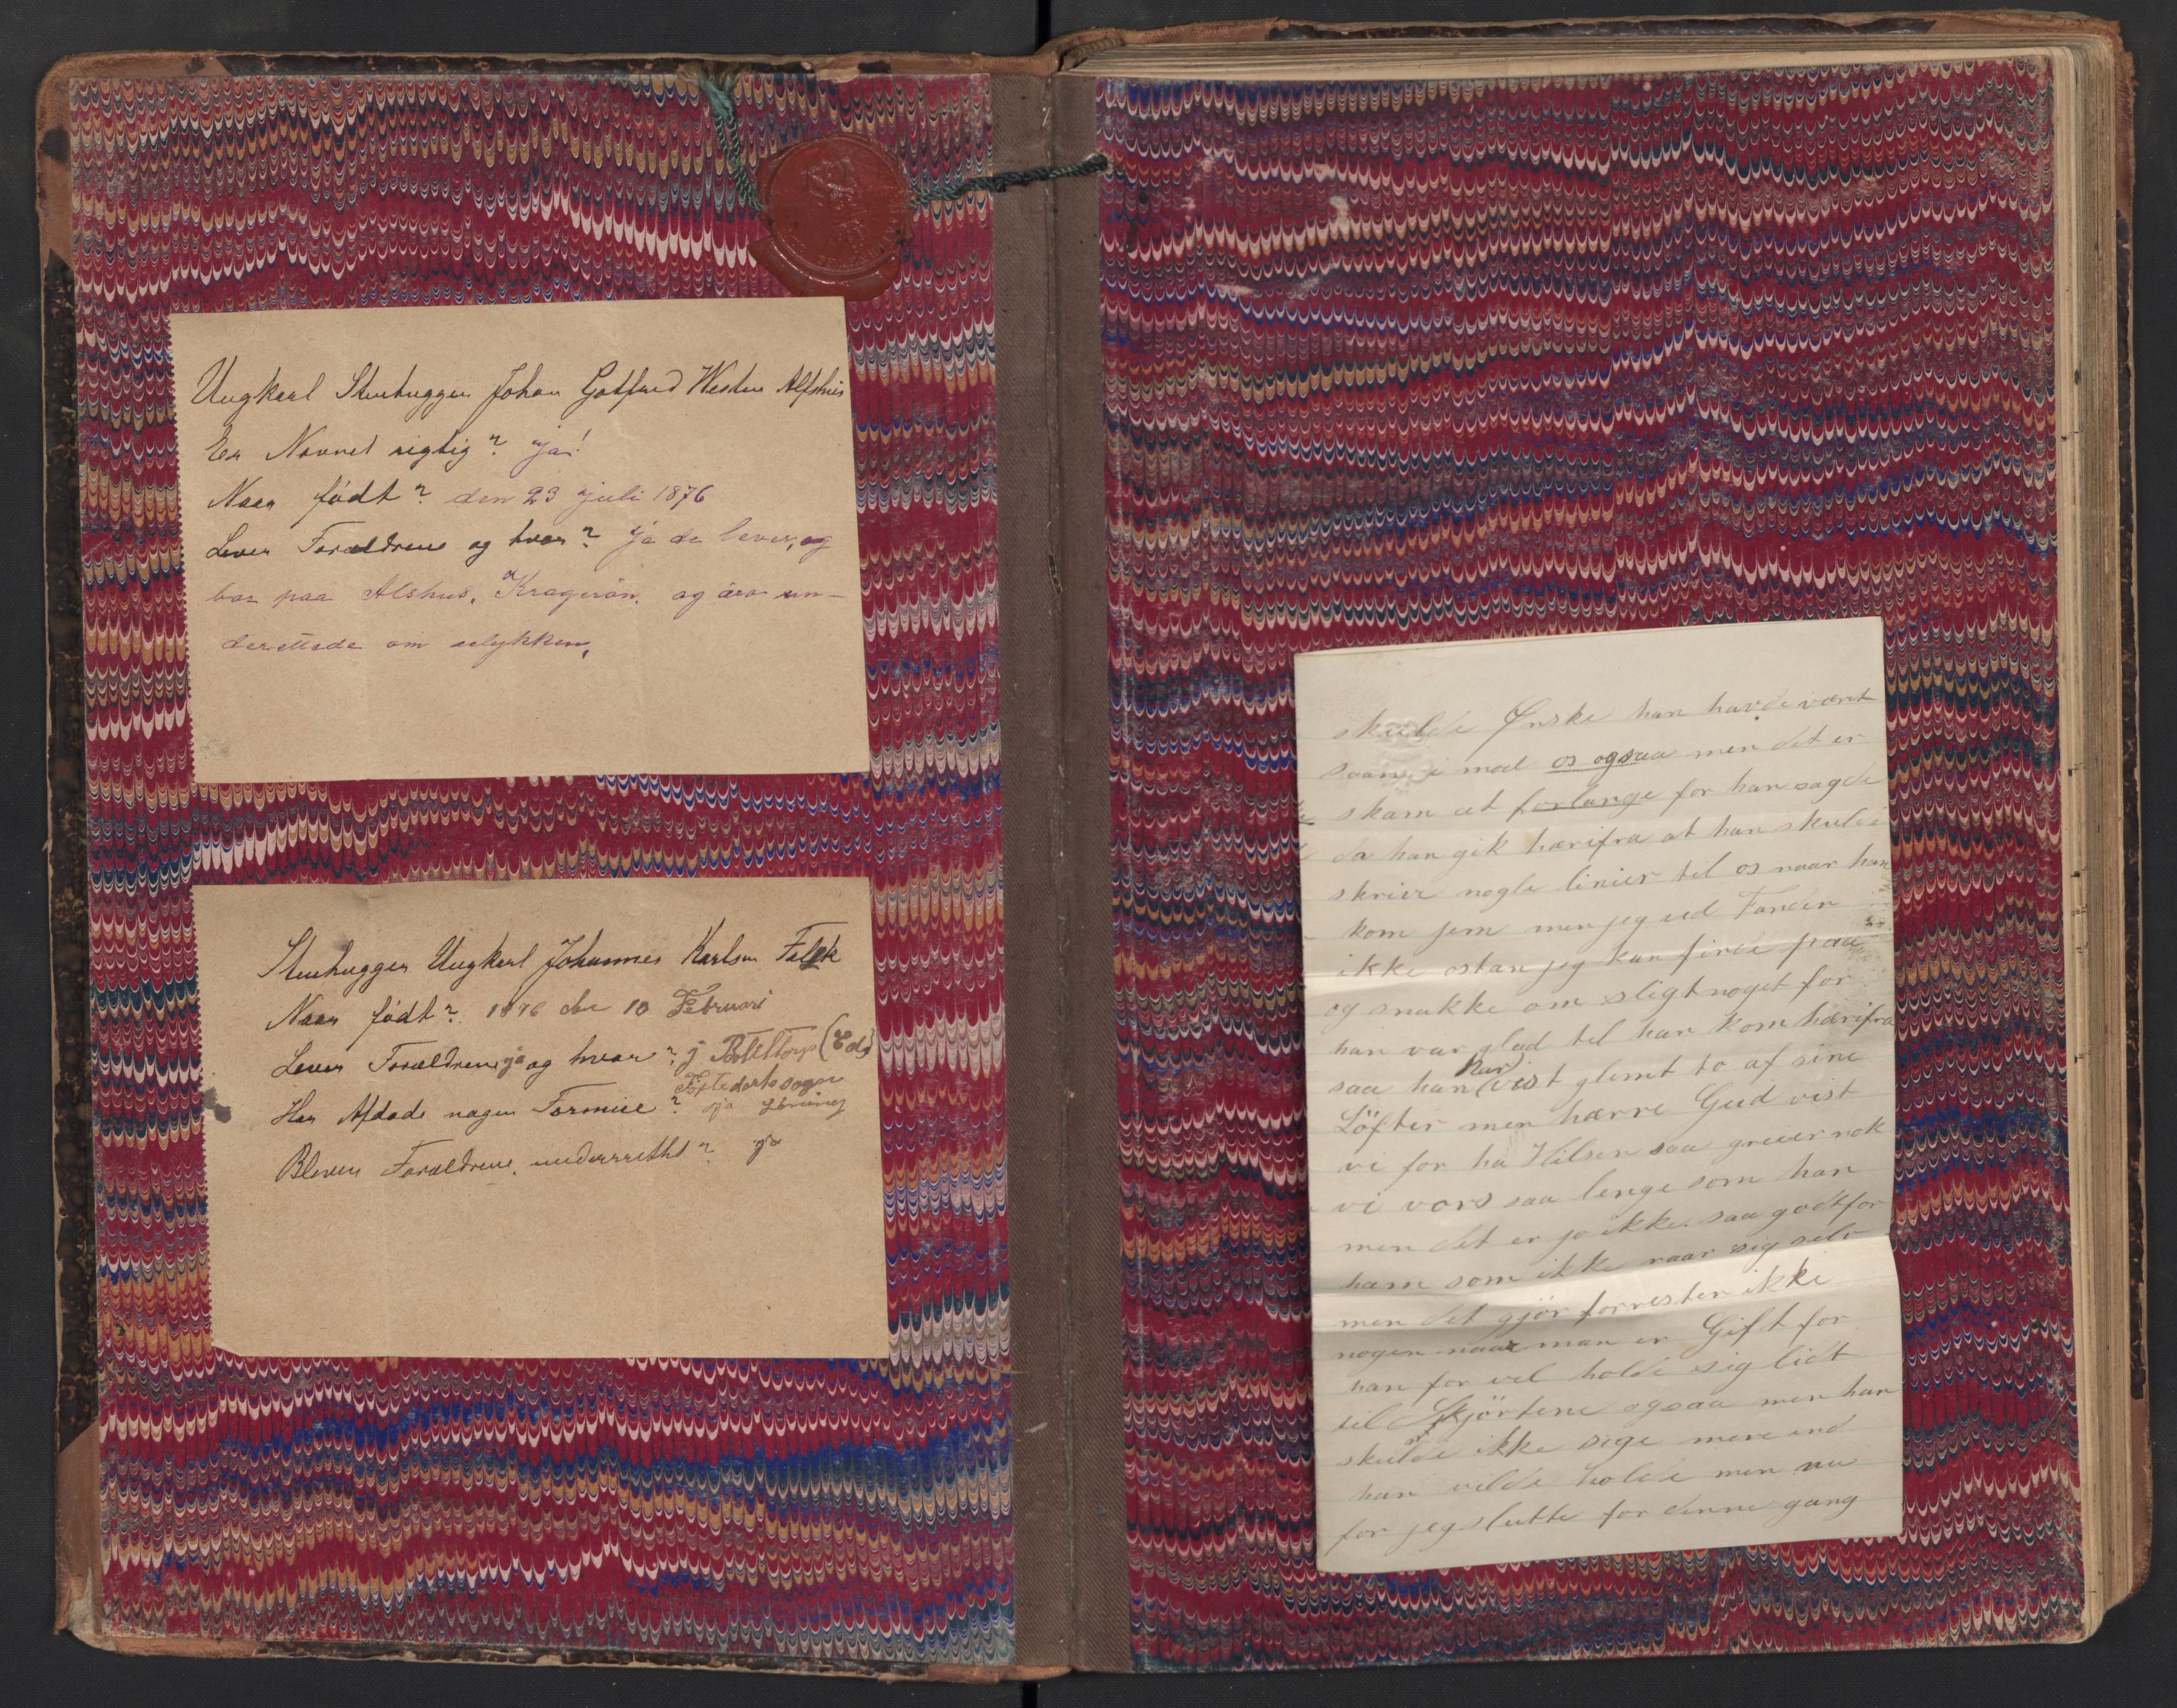 Ungkarl Stenhugger Johan Gotfred Westen Alfshus
Er Navnet rigtig? ja!
Naar født? den 23 juli 1876
Lever Forældrene og hvor? ja de lever, og
bor paa Alshus, Kragerön. og æro un-
derettede om ulykken,
Stenhugger Ungkarl Johannes Karlsen Falck
Naar født? 1876 den 10 Februari
Lever Forældrene ja og hvor? j
Har Afdøde nogen Formue?
Bleven Forældrene underrettet? ja
skulde Ønske han havde været
saan i mod os ogsaa men det er
skam at forlange for han sagde
da han gik hærifra at han skulde
skrive nogle linier til os naar han
kom jem men jeg ved Fanden
ikke ostan jeg kan finde paa
og snakke om sligt noget for
han var glad til han kom hærifra
saa han har vist glemt to af sine
Löfter men hærre Gud vist
vi for ha Hilsen saa greier nok
vi vors saa lenge som han
men det er jo ikke saa godt for
ham som ikke raar sig selv
men det gjör forresten ikke
nogen naar man er Gift for
han for vel holde sig lidt
til Skjörtene ogsaa men han
skulde ikke sige mere end
han vilde holde men nu
for jeg slutte for denne gang